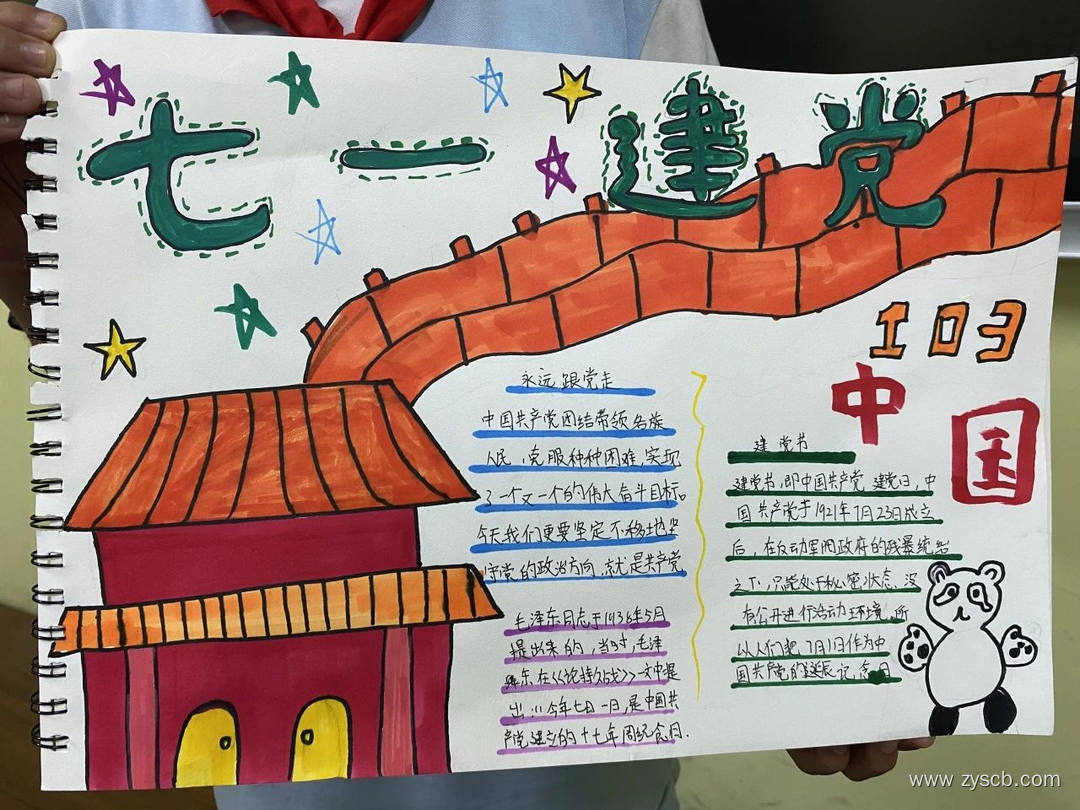 七一建党
103
中
国
永远跟党走
中国共产党团结带领各族
人民,克服种种困难,实现
了一个又一个的伟大奋斗目标。
今天我们更要坚定不移地坚
守党的政治方向,就是共产党
毛泽东同志于1938年5月
提出来的,当时,毛泽
东在《论持久战》一文中提
出:"今年七月一日,是中国共
产党建立的十七年周纪念日.
建党节
建党节,即中国共产党建党日,中
国共产党于1921年7月23日成立
后,在反动军阀政府的残暴统治
之下,只能处于秘密状态,没
有公开进行活动环境,所
以人们把7月1日作为中
国共产党的诞辰纪念日
www.zyscb.com